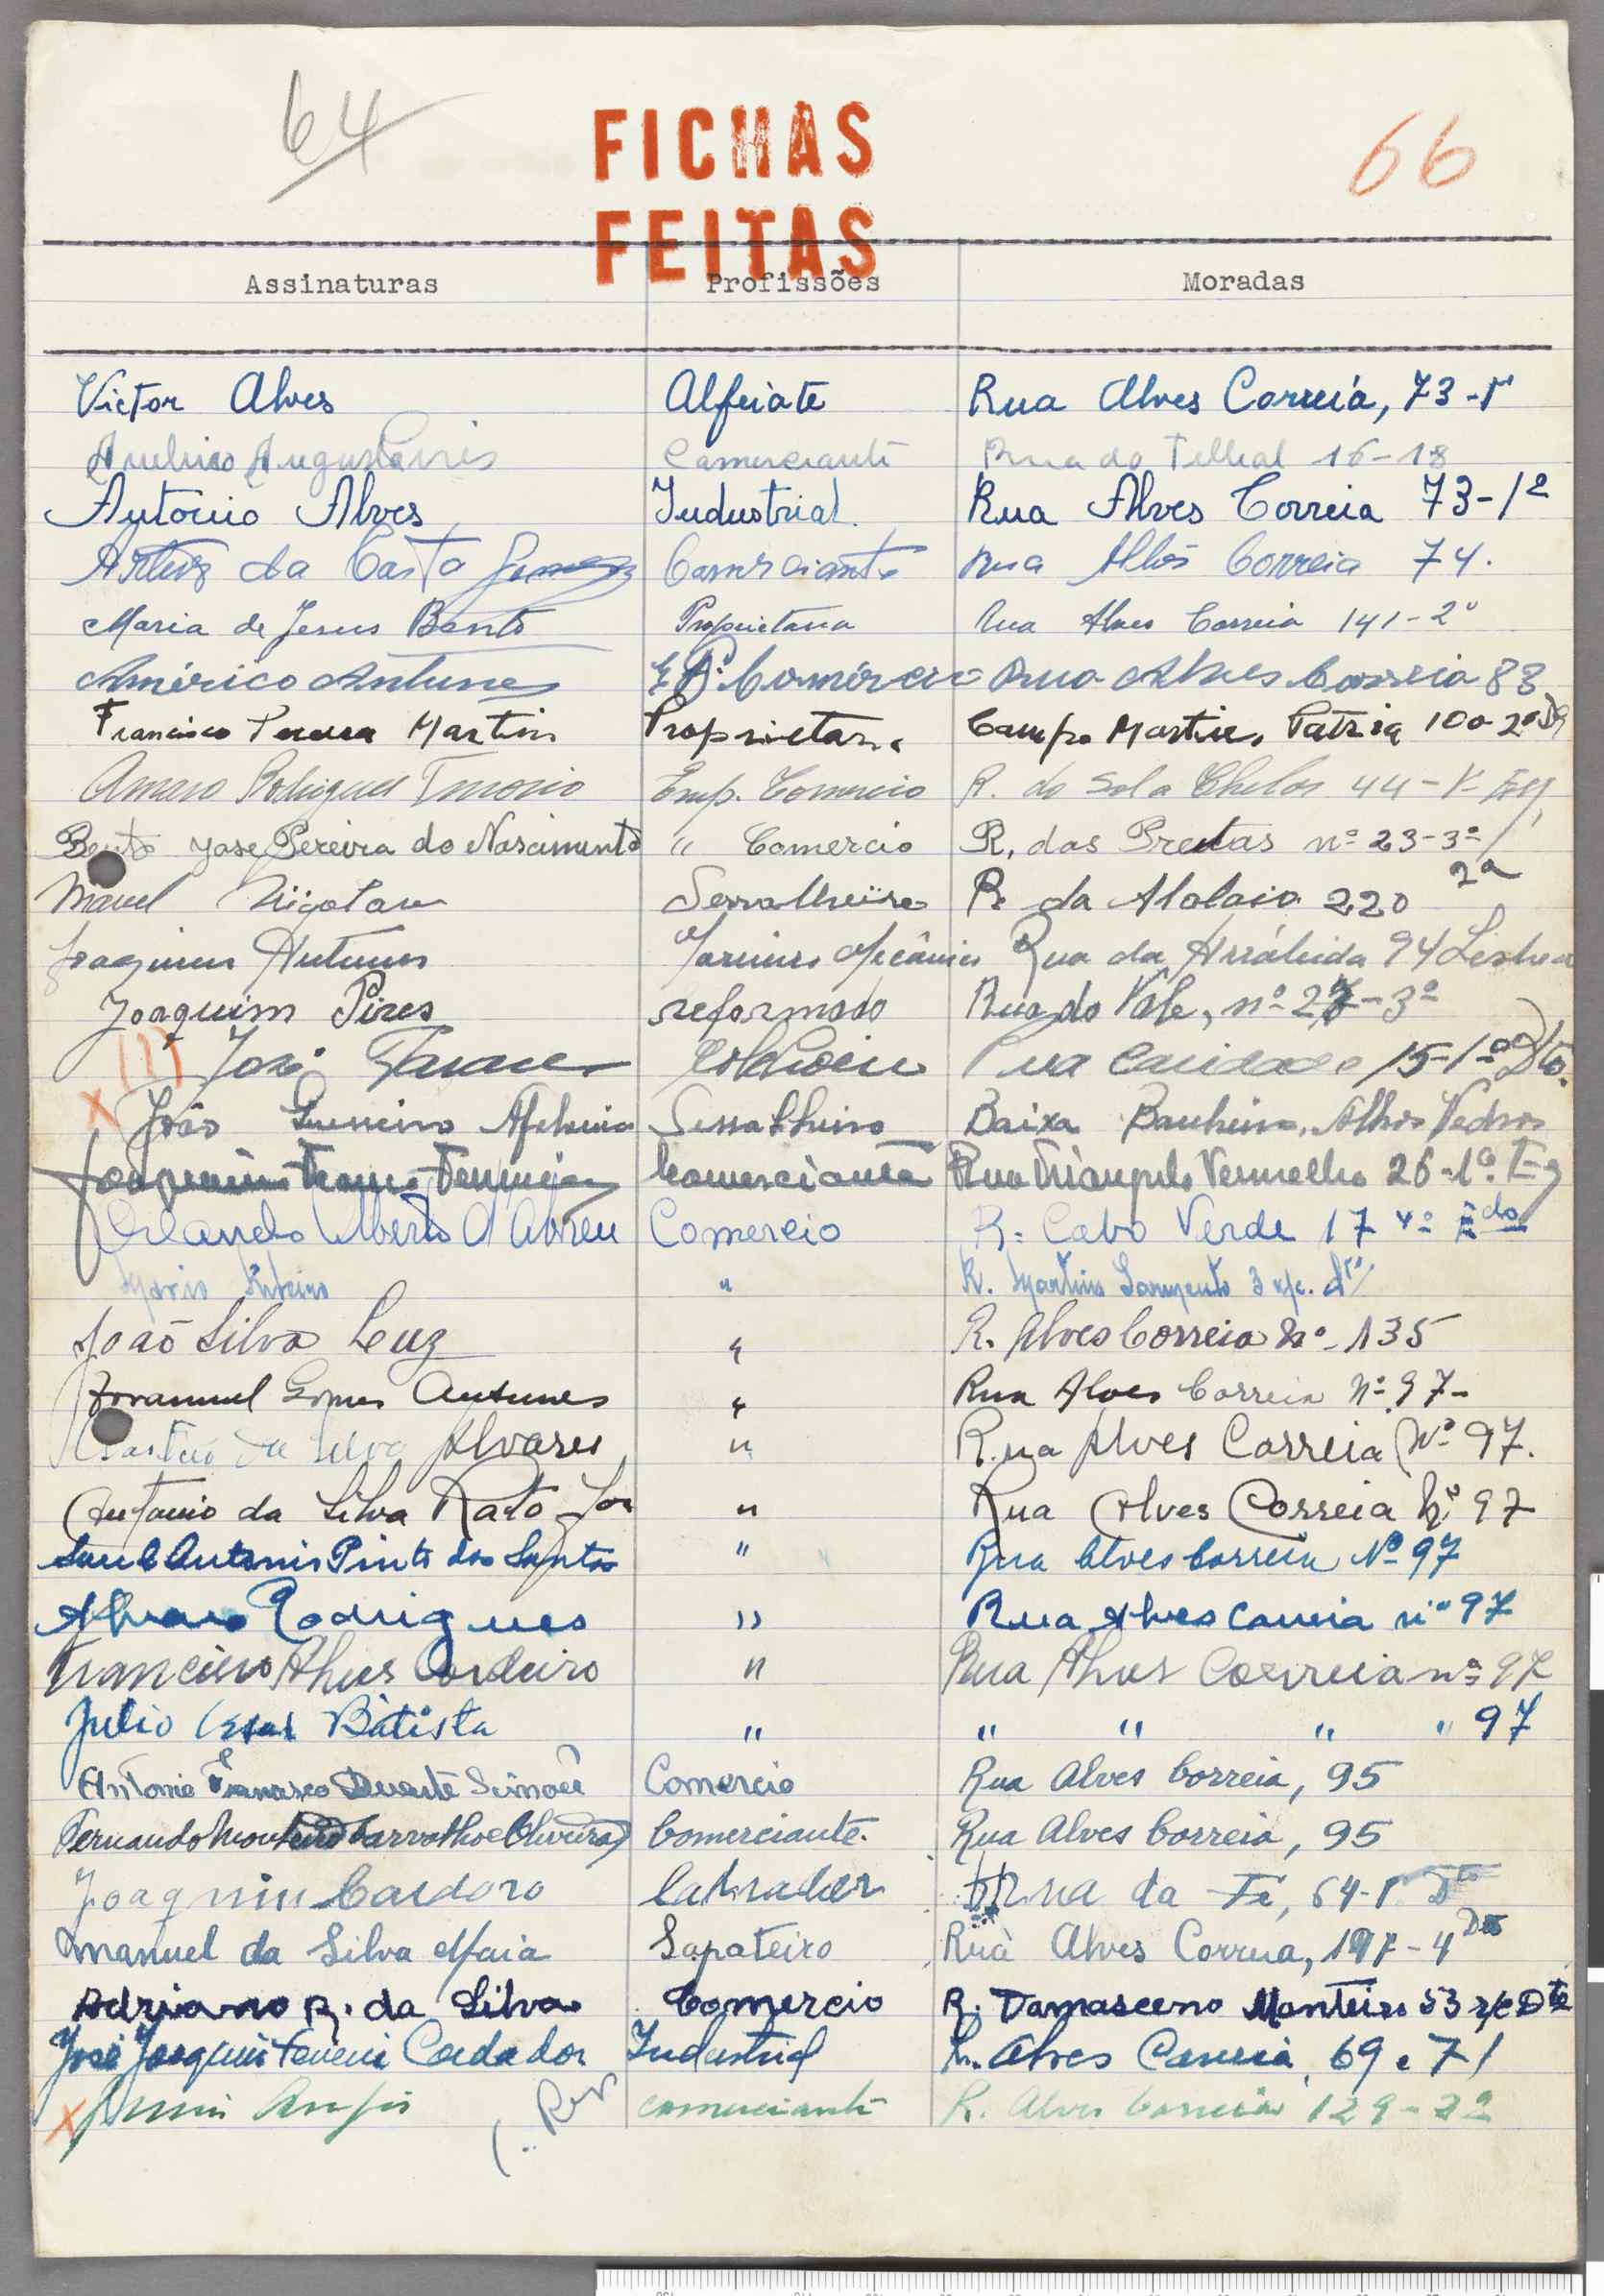 64
66
FICHAS
FEITAS
Assinaturas Profissões Moradas
Victor Alves Alfeiate Rua Alves Correia, 73-1º
Comerciante Rua do Telhal 16-18
Antonio Alves Industrial. Rua Alves Correia 73-1º
Artur da Costa Comerciante Rua Alves Correia 74.
Maria de Jesus Bento Proprietaria Rua Alves Correia 141-2º
Américo Antunes Comércio Rua Alves Correia 83
Francisco Martins Proprietario Campo Martires Patria 100-2º D
Amaro Rodrigues Emp. Comercio R. do Sol a Chelas 44-
Bento Jose Pereira do Nascimento " Comercio R. das Pretas nº 23-3º
Serralheiro R. da Atalaia 220 2º
Joaquim Antunes Rua da Arrábida 94 Lisboa
Joaquim Pires reformado Rua do Vale, nº 27-3º
José Rua 15-1º Dto.
João Serralheiro Baixa Banheira, Alhos Vedros
Comerciante Rua Triangulo Vermelho 26-1º Esq
Orlando Alberto d'Abreu Comercio R. Cabo Verde 17 4º
Mario Ribeiro " R. Martins Sarmento 3 r/c. dto
João Silva Luz " R. Alves Correia Nº 135
Gomes Antunes " Rua Alves Correia Nº 97-
da Silva Alvares " Rua Alves Correia Nº 97.
Antonio da Silva Rato " Rua Alves Correia Nº 97
Antonio Pinto dos Santos " Rua Alves Correia Nº 97
Alvaro Rodrigues " Rua Alves Correia nº 97
Francisco Alves Cordeiro " Rua Alves Correia nº 97
Julio Cesar Batista " " " " " 97
Antonio Francisco Duarte Simões Comercio Rua Alves Correia, 95
Fernando Monteiro Carvalho e Oliveira Comerciante. Rua Alves Correia, 95
Joaquim Cardoso Rua da Fé, 64-1º Dto
Manuel da Silva Maia Sapateiro Rua Alves Correia, 197-4 Dto
Adriano R. da Silva Comercio R. Damasceno Monteiro 53 r/c Dto
José Joaquim Industrial R. Alves Correia, 69 e 71
comerciante R. Alves Correia 129-2º